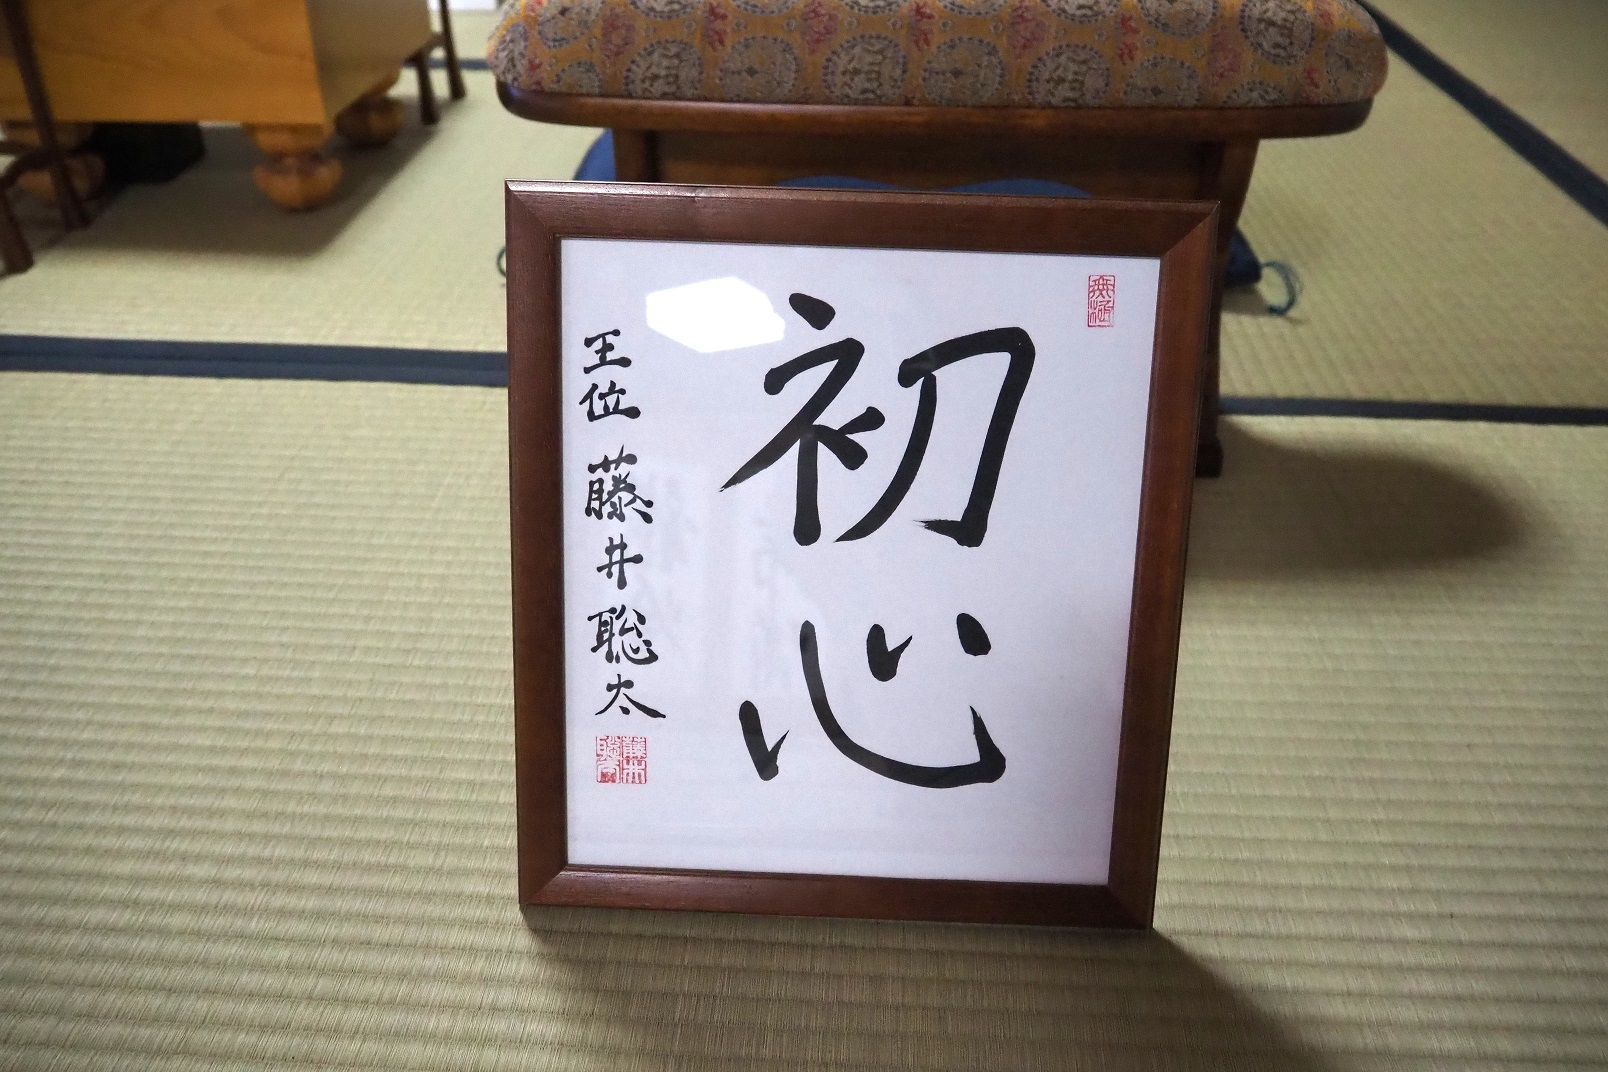 初心
王位 藤井聡太